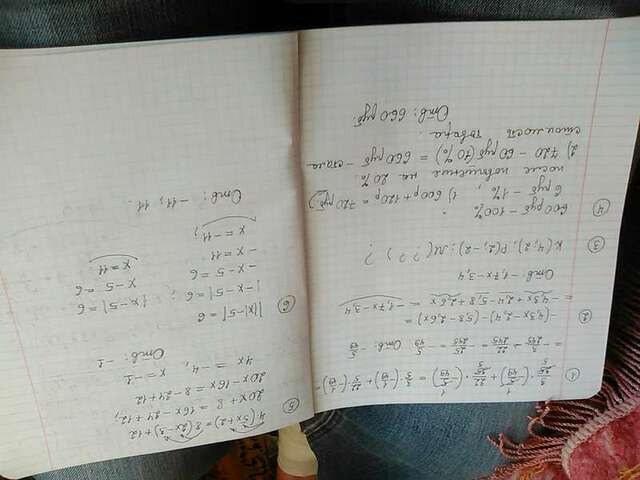 ①
= -3/245 - 22/245 = -25/245 = -5/49 Отв: -5/49
②
-(4,3x-2,4)-(5,8-2,6x)=
= -4,3x+2,4-5,8+2,6x = -1,7x-3,4
Отв: -1,7x-3,4
③
K(4;2); P(2;-2); M( ? ; ? )
④
600 руб - 100%
6 руб - 1%, 1) 600р + 120р = 720 руб.
после повышения на 20%.
2) 720 - 60 руб (10%) = 660 руб - стала
стоимость товара.
Отв: 660 руб.
⑤
4(5x+2)=8(2x-3)+12
20x+8 = 16x-24+12;
20x-16x = 8-24+12
4x = -4, x = -1
Отв: -1
⑥
||x|-5| = 6
|-x-5| = 6; |x-5| = 6
-x-5 = 6 x-5 = 6
-x = 11 x = 11
x = -11;
Отв: -11, 11.